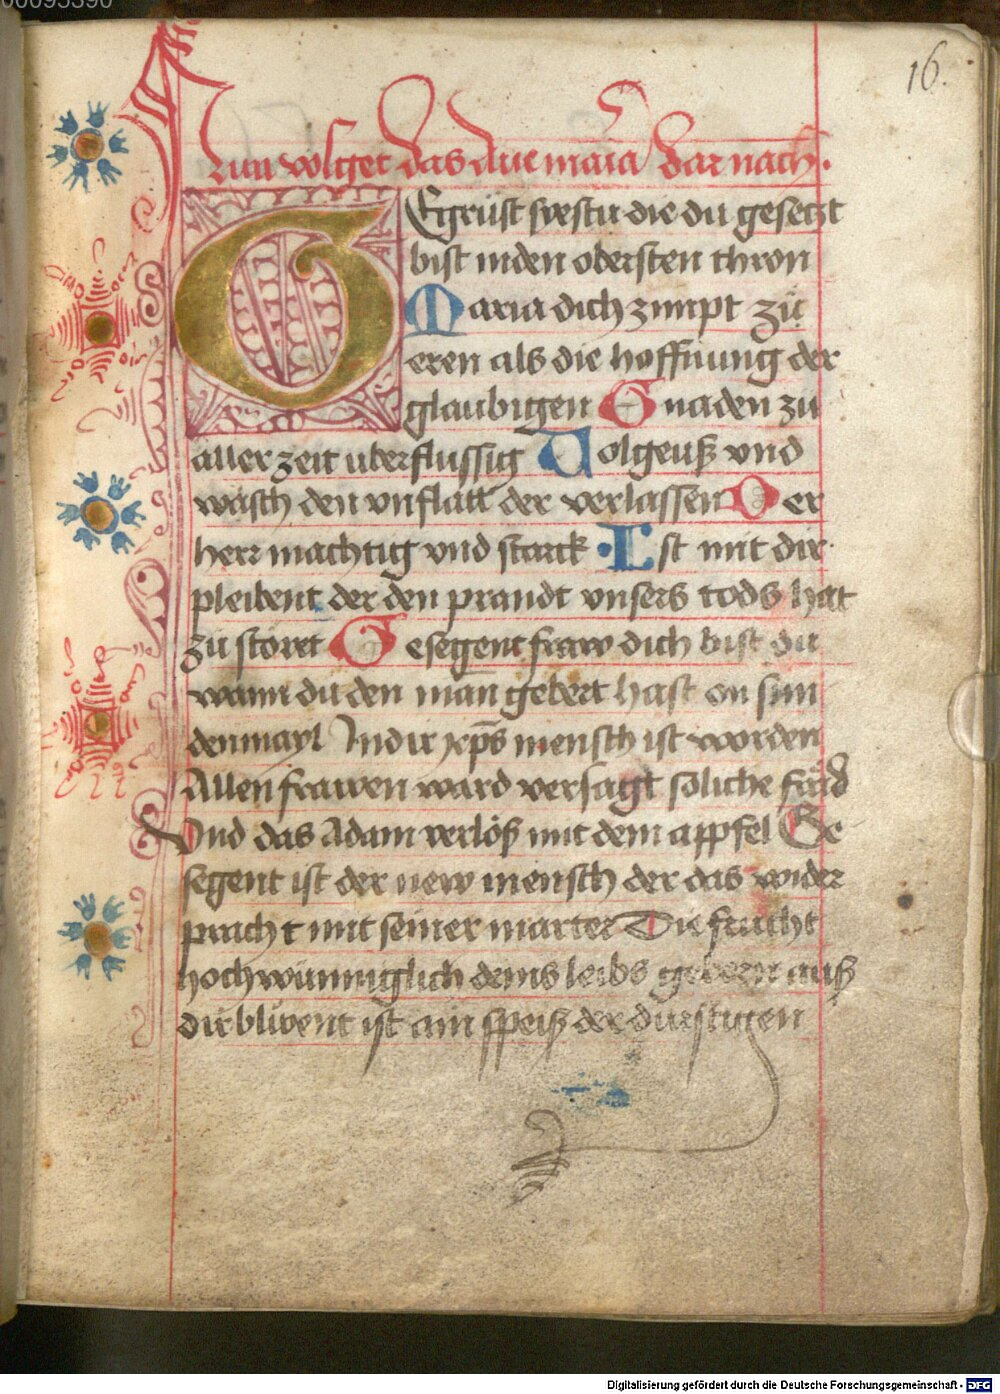 00095390
16.
Nun volget das Aue maria dar nach.
GEgrüst pestu die du gesetzt
bist in den obersten thron
Maria dich zimpt zü
eren als die hoffnung der
glaubigen Gnaden zu
aller zeit uberflussig Volgeuß vnd
wasch den vnflatt der verlassen Der
herr machtig vnd starck · Ist mit dir
pleibent der den prandt vnsers tods hat
zu storet Gesegent fraw dich bist du
wann du den man gebert hast on sun
denmayl In dir xp̄s mensch ist worden
Allen frawen ward versagt soliche frād
Vnd das Adam verlöß mit dem appfel Ge
segent ist der new mensch der das wider
pracht mit seiner marter Die frucht
hochwünniglich deins leibs gebern auß
dir blüent ist ain speiß der durstigen
Digitalisierung gefördert durch die Deutsche Forschungsgemeinschaft - DFG